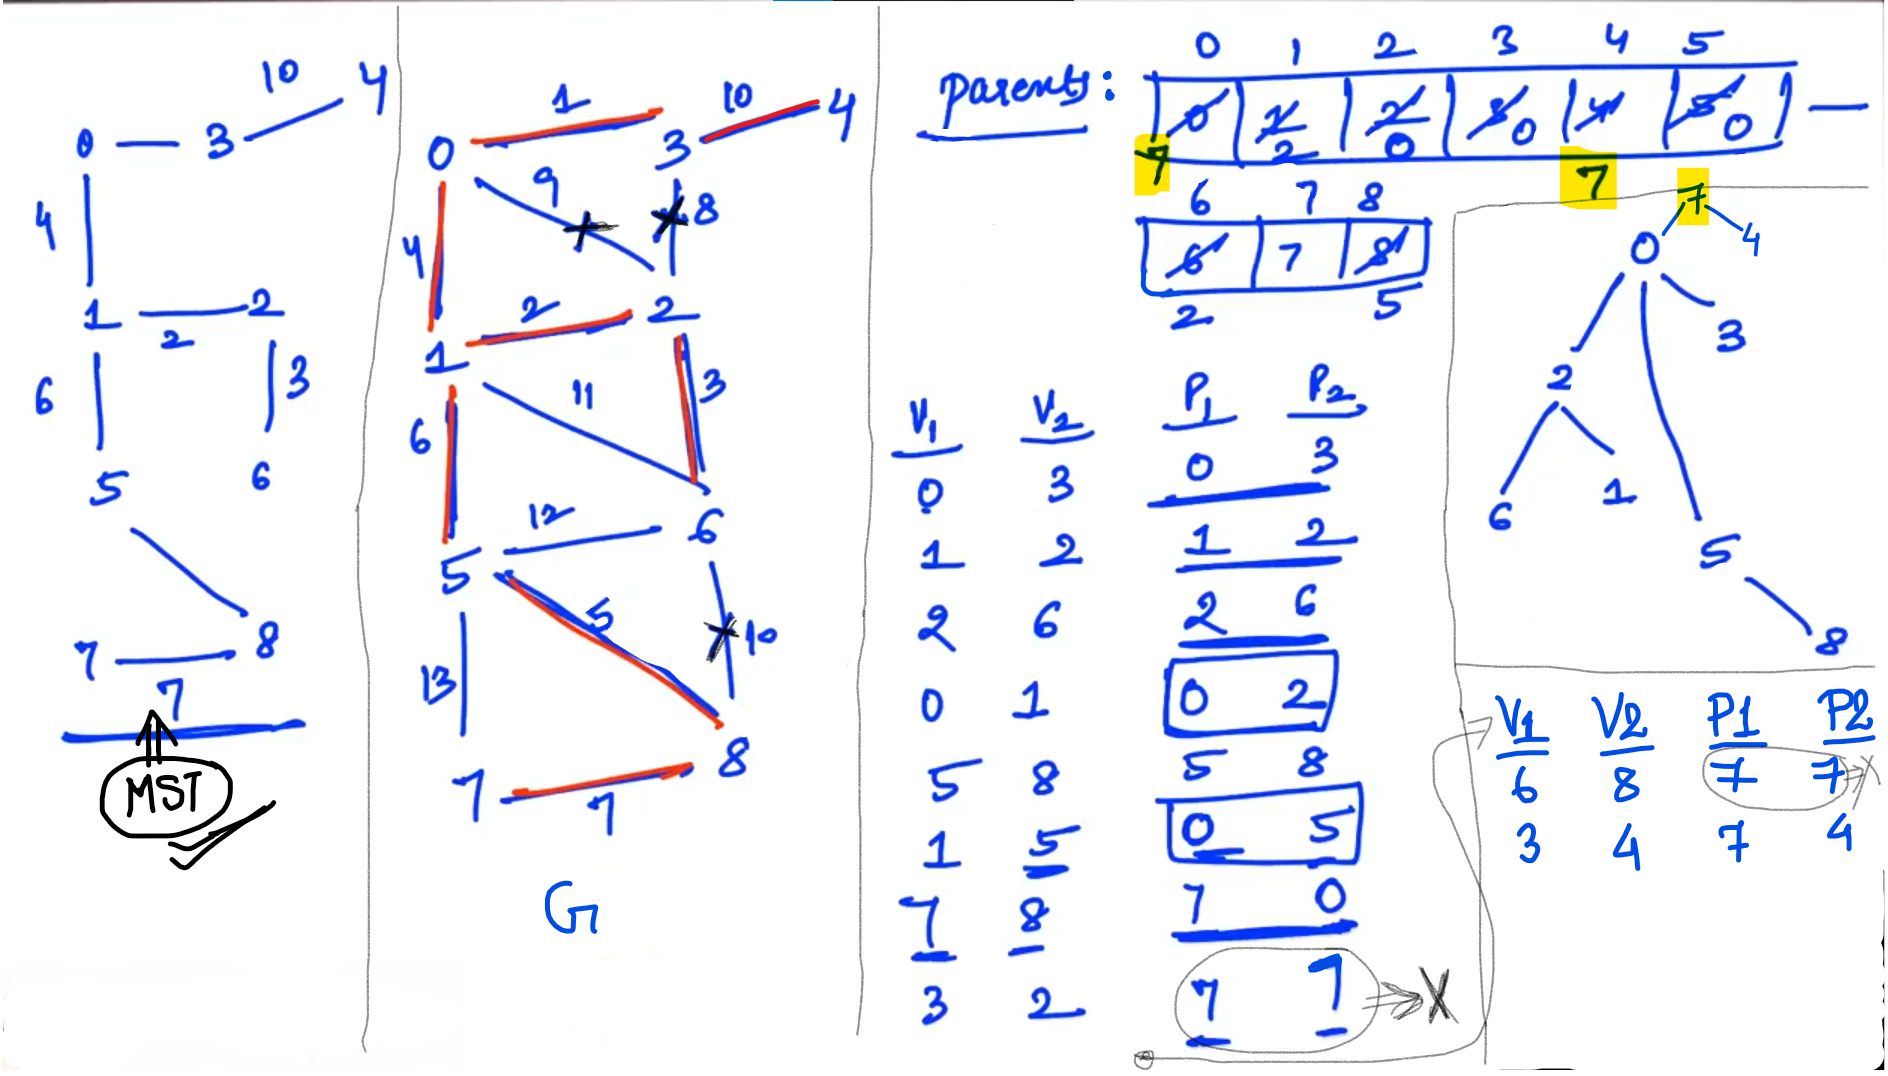 10
0 3 4
4
1 2
2
6 3
5 6
7 8
7
MST
1 10
0 3 4
9 8
4
2
1 2
11 3
6
12
5 6
5 10
13
7 8
7
G
Parents:
0 1 2 3 4 5
0 1 2 3 4 5
7 2 0 0 7 0
6 7 8
6 7 8
2 5
V1 V2 P1 P2
0 3 0 3
1 2 1 2
2 6 2 6
0 1 0 2
5 8 5 8
1 5 0 5
7 8 7 0
3 2 7 7 X
7
0 4
2 3
6 1
5
8
V1 V2 P1 P2
6 8 7 7 X
3 4 7 4